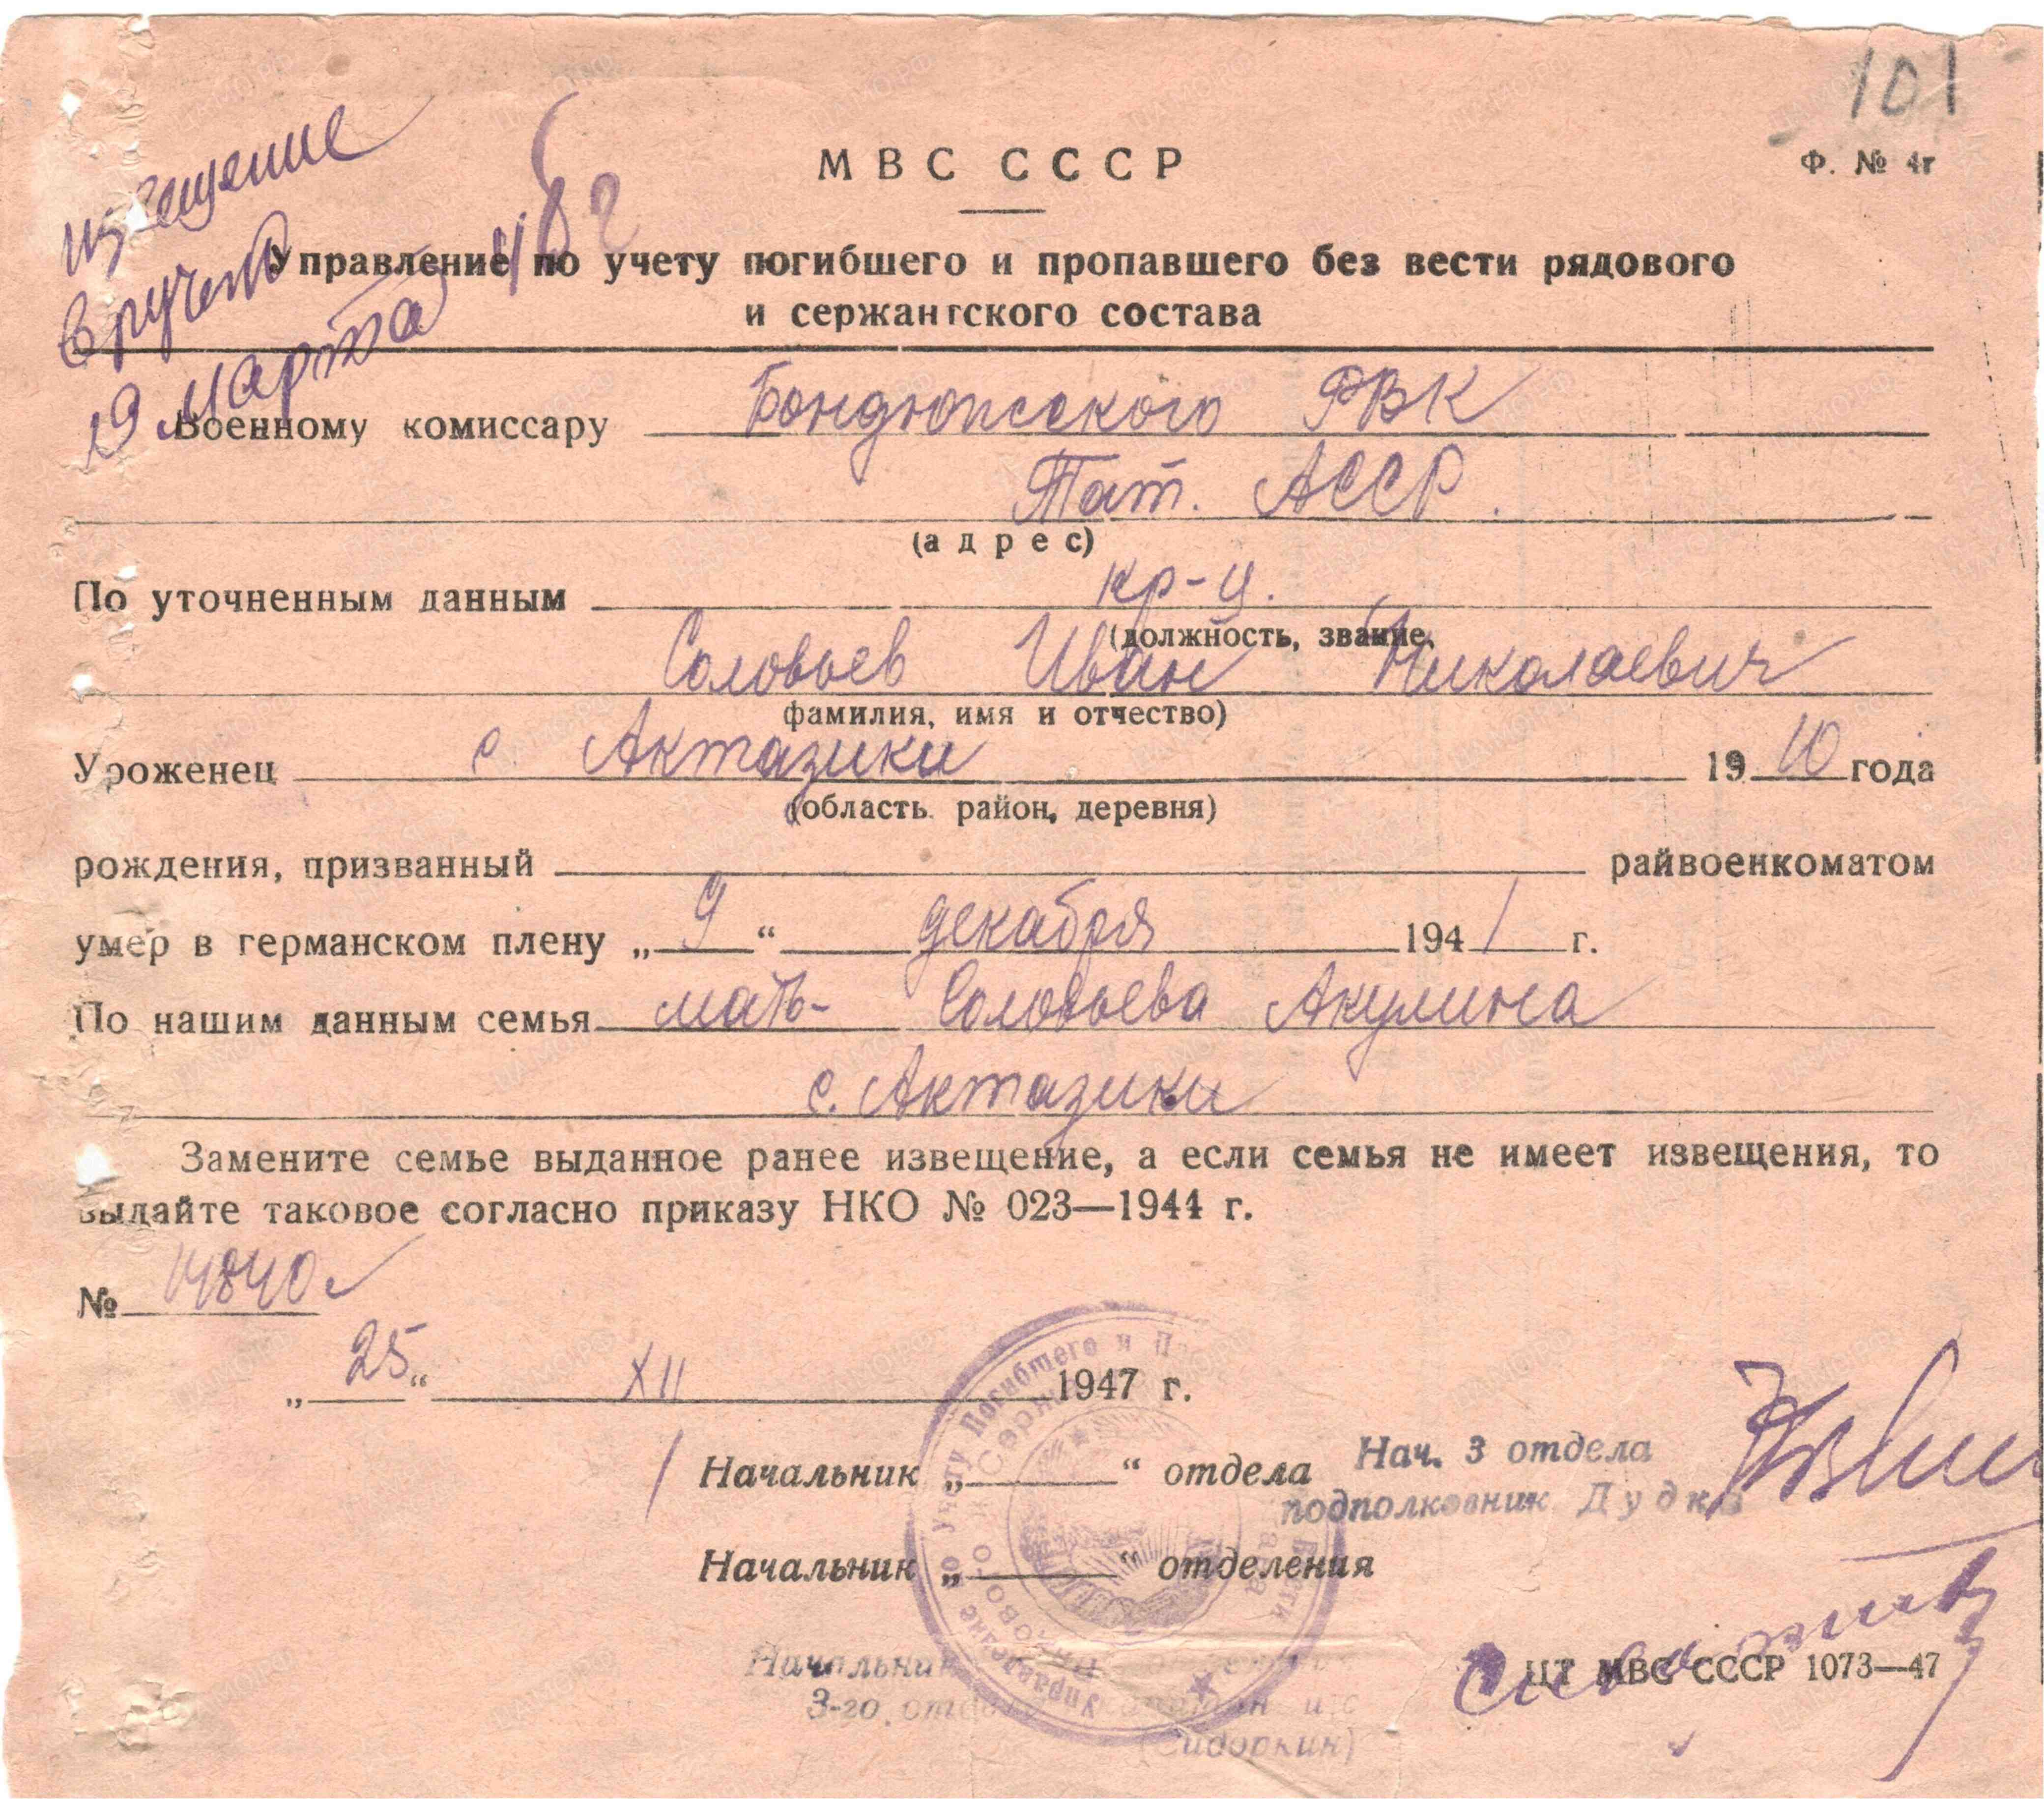 101
МВС СССР
Ф. № 4г
извещение
вручено
19 марта 48 г
Управление по учету погибшего и пропавшего без вести рядового
и сержантского состава
Военному комиссару Бондюжского РВК
Тат. АССР.
(адрес)
По уточненным данным кр-ц.
(должность, звание,
Соловьев Иван Николаевич
фамилия, имя и отчество)
Уроженец с. Актазики 1910 года
(область. район, деревня)
рождения, призванный райвоенкоматом
умер в германском плену „9“ декабря 1941 г.
По нашим данным семья мать- Соловьева Акулина
с. Актазики
Замените семье выданное ранее извещение, а если семья не имеет извещения, то
выдайте таковое согласно приказу НКО № 023—1944 г.
№ 14840
„25“ XII 1947 г.
Начальник „ “ отдела Нач. 3 отдела
подполковник Дудка
Начальник „ “ отделения
Управление по учету Погибшего и
Начальник
3-го
(Сидоркин)
ЦТ МВС СССР 1073—47